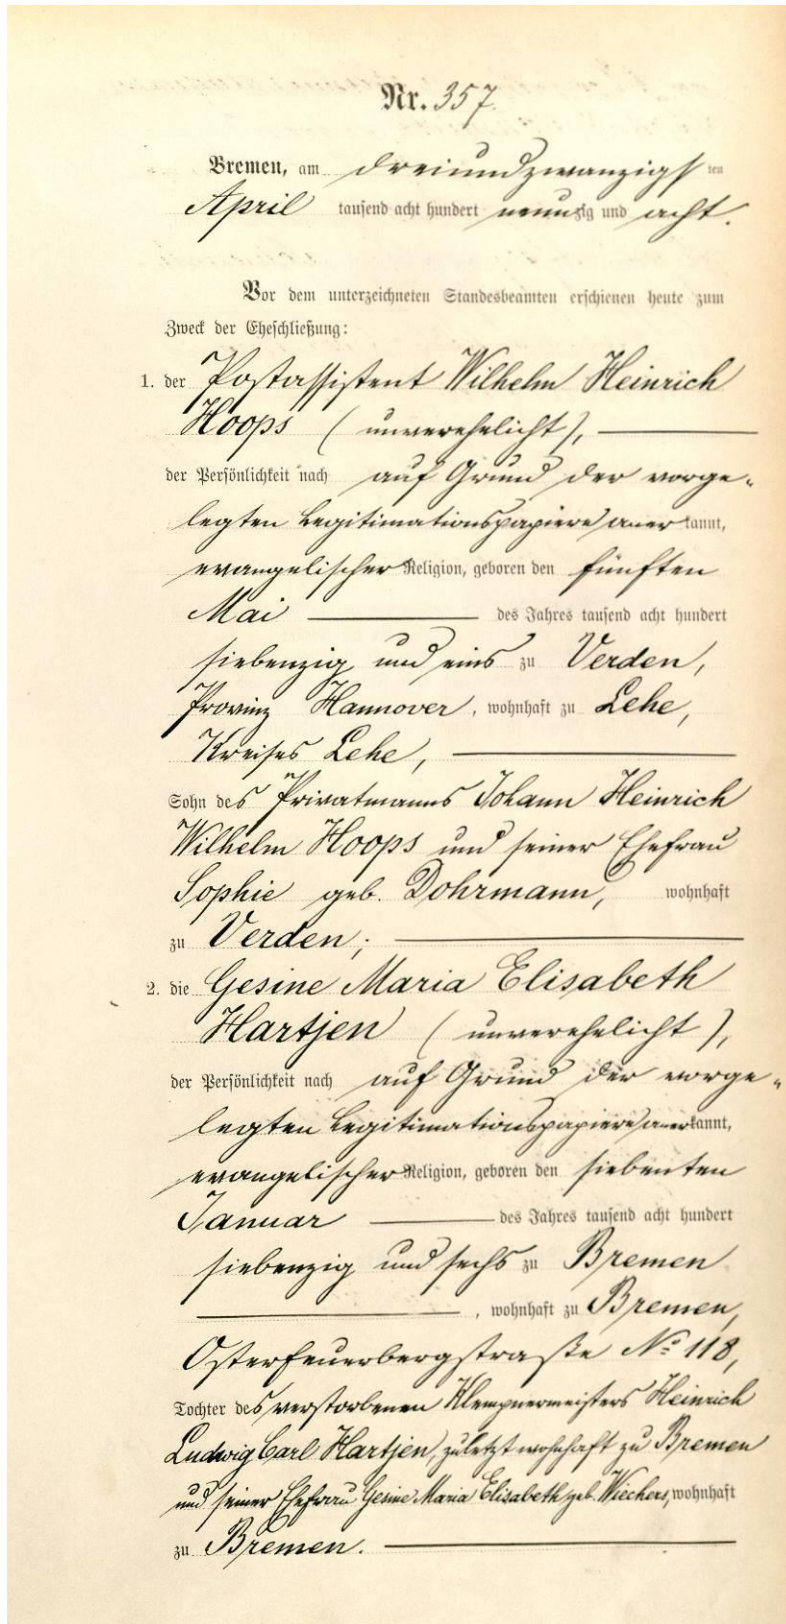 Nr. 357.
Bremen, am dreiundzwanzigsten
April tausend acht hundert neunzig und acht.
Vor dem unterzeichneten Standesbeamten erschienen heute zum
Zweck der Eheschließung:
1. der Postassistent Wilhelm Heinrich
Hoops (unverehelicht),
der Persönlichkeit nach auf Grund der vorge-
legten Legitimationspapiere anerkannt,
evangelischer Religion, geboren den fünften
Mai des Jahres tausend acht hundert
siebenzig und eins zu Verden,
Provinz Hannover, wohnhaft zu Lehe,
Kreises Lehe,
Sohn des Privatmanns Johann Heinrich
Wilhelm Hoops und seiner Ehefrau
Sophie geb. Dohrmann, wohnhaft
zu Verden;
2. die Gesine Maria Elisabeth
Hartjen (unverehelicht),
der Persönlichkeit nach auf Grund der vorge-
legten Legitimationspapiere anerkannt,
evangelischer Religion, geboren den siebenten
Januar des Jahres tausend acht hundert
siebenzig und sechs zu Bremen
, wohnhaft zu Bremen,
Osterfeuerbergstraße No 118,
Tochter des verstorbenen Klempnermeisters Heinrich
Ludwig Carl Hartjen, zuletzt wohnhaft zu Bremen
und seiner Ehefrau Gesine Maria Elisabeth geb. Wiechers, wohnhaft
zu Bremen.